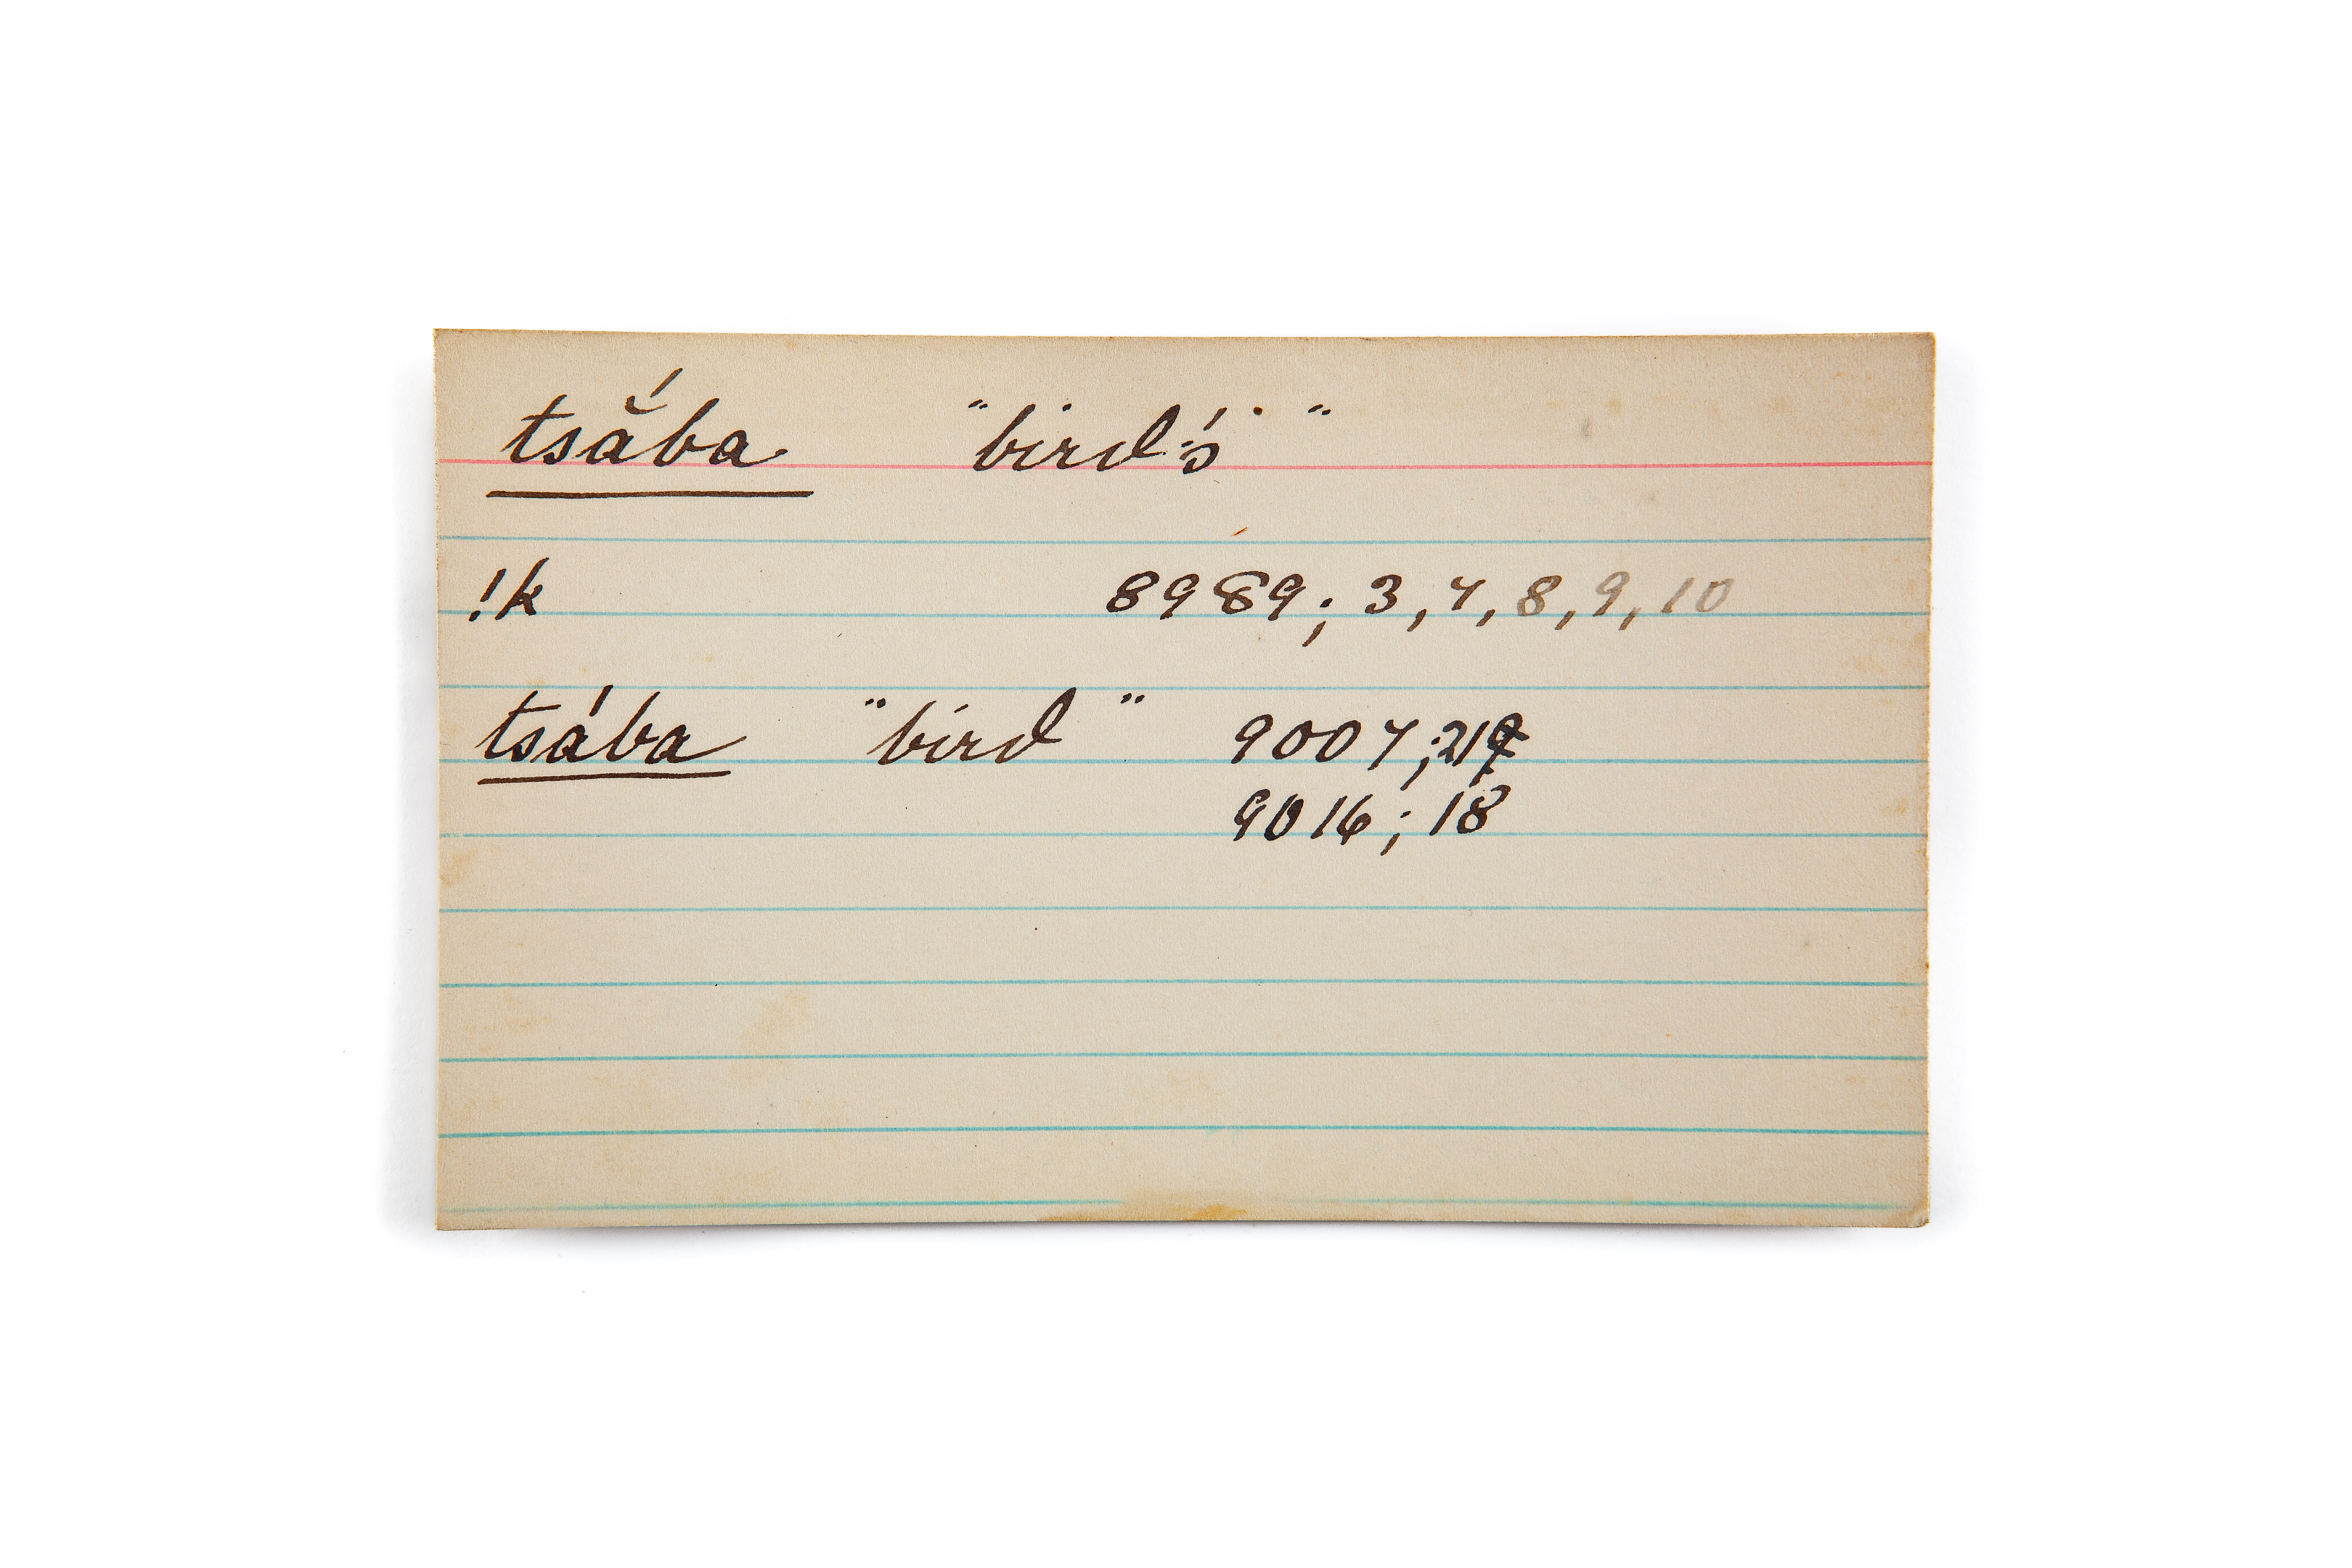 tsā̆́ba "bird's"
!k 8989; 3, 7, 8, 9, 10
tsába "bird" 9007;
9016; 18